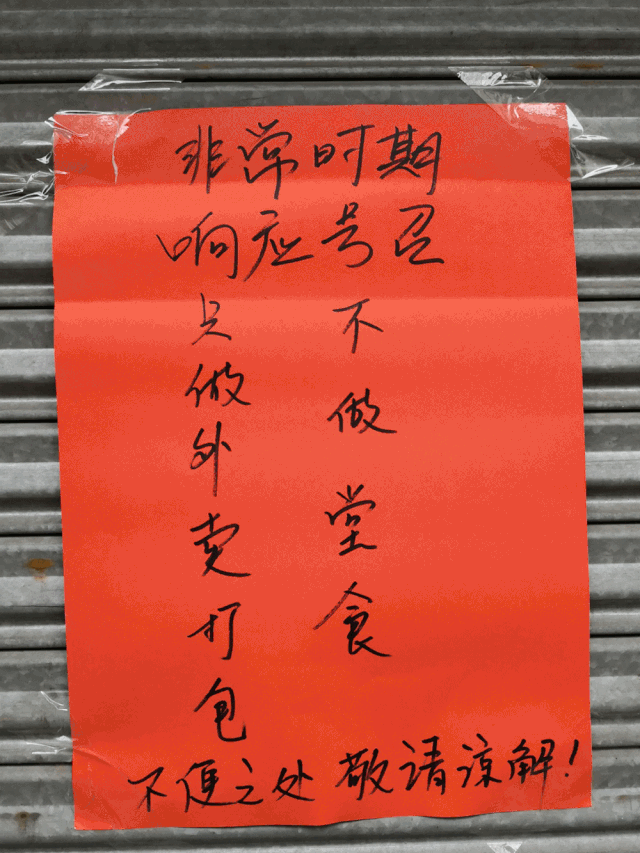 非常时期
响应号召
只做外卖打包
不做堂食
不便之处 敬请谅解!